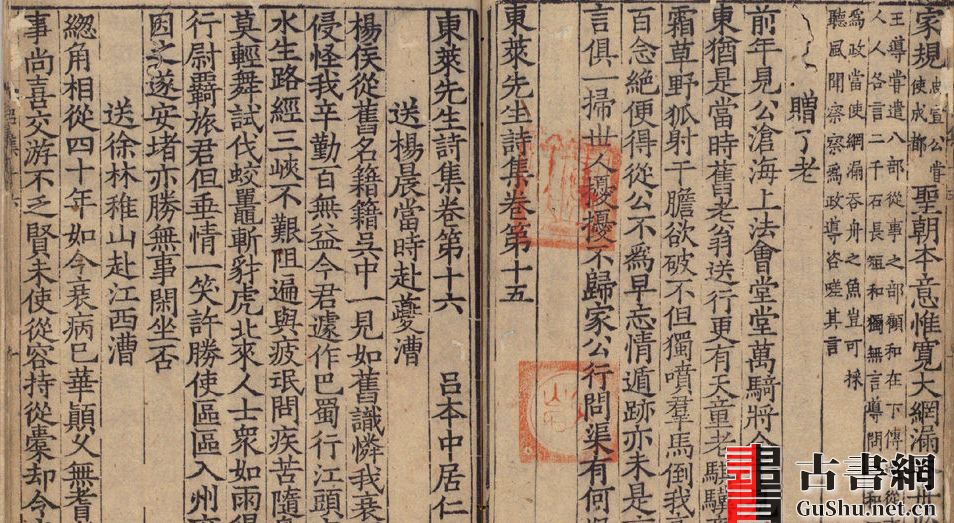 家規 使成都 聖朝本意惟寬大網漏
王導嘗遣八部從事之部顧和在下傳 從
人人各言二千石長短和獨無言導問和
爲政當使網漏吞舟之魚豈可採
聽風聞察察爲政導咨嗟其言
贈了老
前年見公滄海上法會堂堂萬騎將
東猶是當時舊老翁送行更有天童老騏驥
霜草野狐射干膽欲破不但獨噴羣馬倒我
百念絶便得從公不爲早忘情遁跡亦未是
言俱一掃世人 擾不歸家公行問渠有何
東萊先生詩集卷第十五
東萊先生詩集卷第十六
呂本中居仁
送楊晨當時赴夔漕
楊侯從舊名籍籍 中一見如舊識憐我衰
侵怪我辛勤百無益今君遽作巴蜀行江頭
水生路經三峽不艱阻遍與疲珉問疾苦隨
莫輕舞試伐蛟鼉斬豺虎北來人士衆如雨得
行尉羇旅君但垂情一笑許勝使區區入州
因之遂安堵亦勝無事閑坐否
送徐林稚山赴江西漕
緫角相從四十年如今衰病已華顛父無耆
事尚喜交游不乏賢未使從容持從橐却令
古書網
GuShu.net.cn